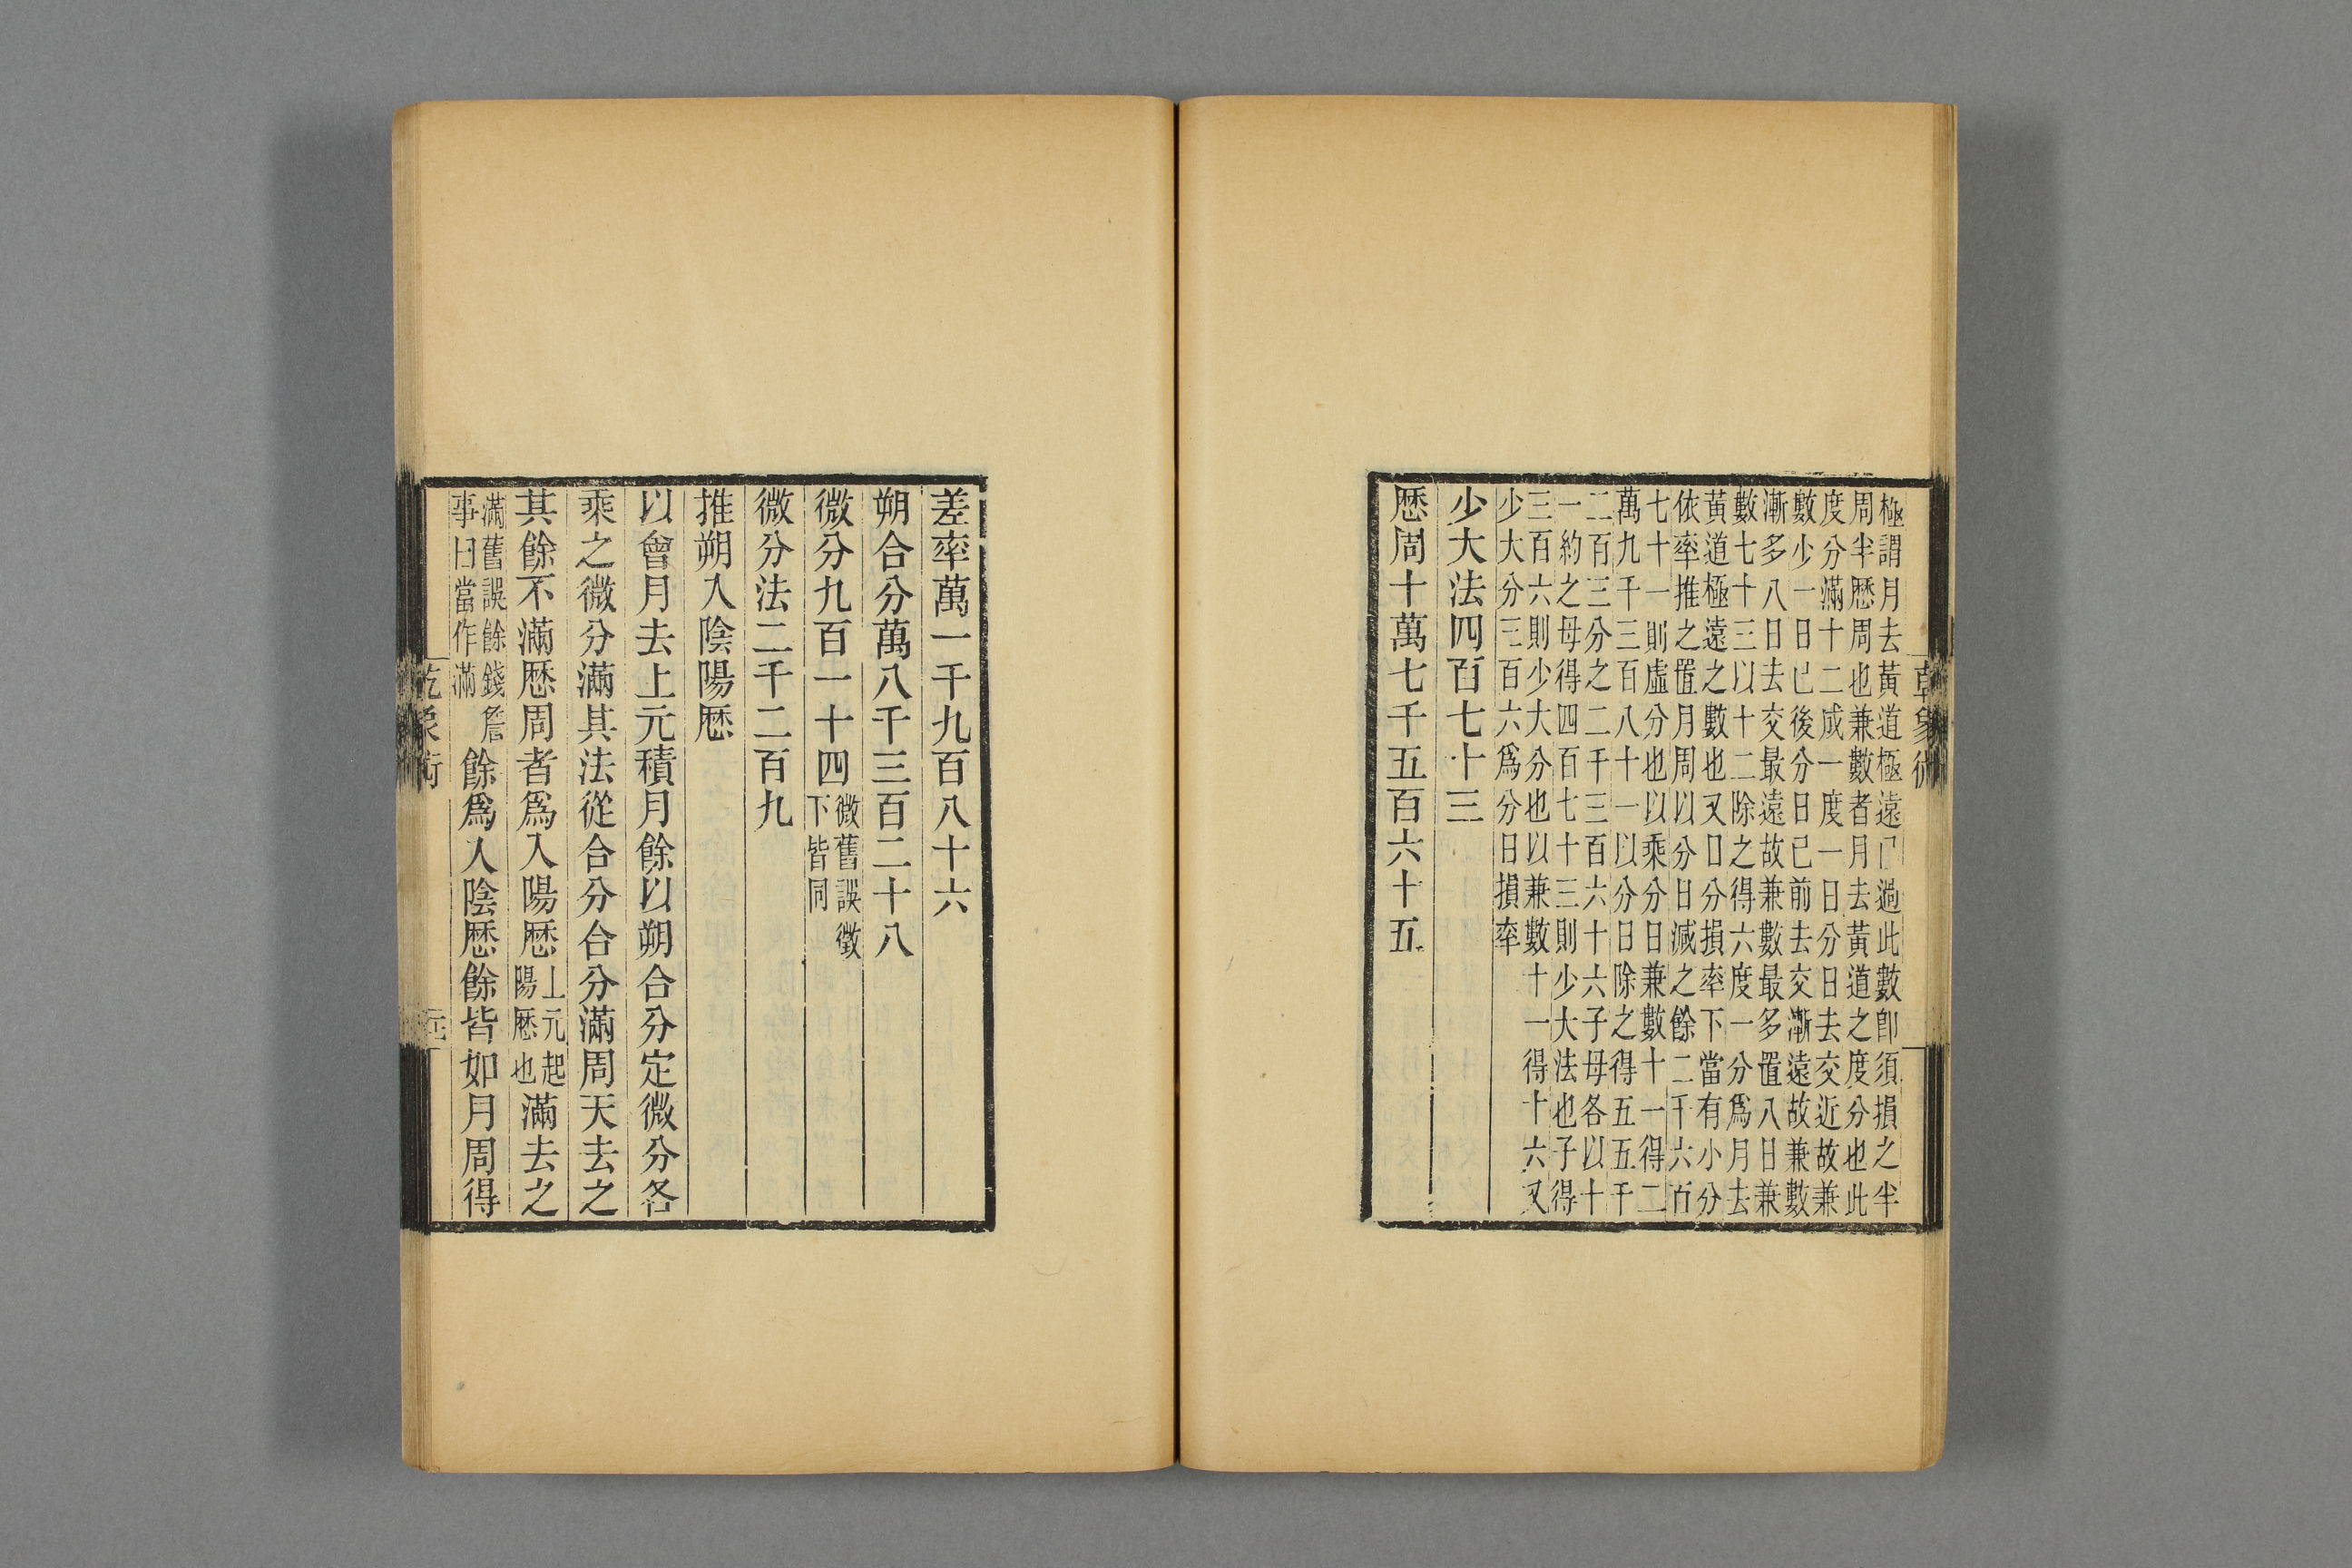 極謂月去黃道極遠已過此數卽須損之半
周半歷周也兼數者月去黃道之度分也此
度分滿十二成一度一日分日去交近故兼
數少一日已後分日已前去交漸遠故兼數
漸多八日去交最遠故兼數最多置八日兼
數七十三以十二除之得六度一分爲月去
黃道極遠之數也又日分損率下當有小分
依率推之置月周以分日減之餘二千六百
七十一則虛分也以乘分日兼數十一得二
萬九千三百八十一以分日除之得五五千
二百三分之二千三百六十六子母各以十
一約之母得四百七十三則少大法也子得
三百六則少大分也以兼數十一得十六又
少大分三百六爲分日損率
少大法四百七十三
歷周十萬七千五百六十五
差率萬一千九百八十六
朔合分萬八千三百二十八
微分九百一十四微舊誤徵下皆同
微分法二千二百九
推朔入陰陽歷
以會月去上元積月餘以朔合分定微分各
乘之微分滿其法從合分合分滿周天去之
其餘不滿歷周者爲入陽歷上元起陽歷也滿去之
滿舊誤餘錢詹事曰當作滿餘爲入陰歷餘皆如月周得
乾象術